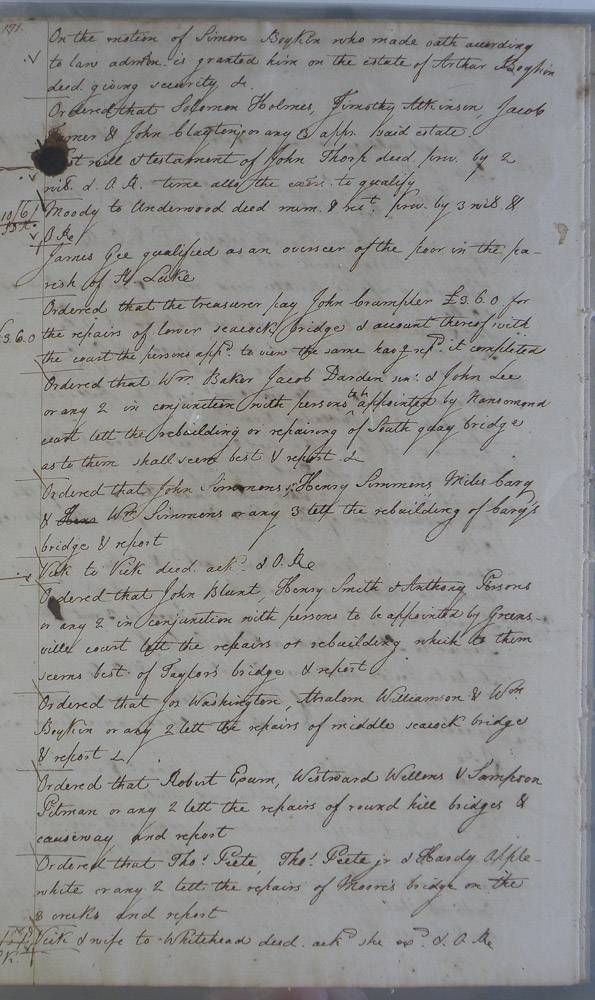 171.
On the motion of Simon Boykin who made oath according
to law admon. is granted him on the estate of Arthur Boykin
deed. giving security &.
Ordered that Solomon Holmes, Timothy Atkinson, Jacob
Turner & John Clayton, or any 3 appr. said estate
last will & testament of John Thorp deed prov. by 2
wits. & O.R. time allo the exors. to qualify
Moody to Underwood deed mem. & rect. prov. by 3 wits &
O Re
James Gee qualified as an overseer of the poor in the pa-
rish of St. Luke
Ordered that the treasurer pay John Crumpler £3.6.0 for
£3.6.0 the repairs of lower seacock bridge & account thereof with
the court the persons appd. to view the same havg repd. it completed
Ordered that Wm. Baker Jacob Darden senr. & John Lee
or any 2 in conjunction with persons to be appointed by Nansemond
court lett the rebuilding or repairing of South quay bridge
as to them shall seem best & report &
Ordered that John Simmons, Henry Simmons, Miles Cary
& Wm. Simmons or any 3 lett the rebuilding of Cary's
bridge & report
Vick to Vick deed. ackd. & O. Re
Ordered that John Blunt, Henry Smith & Anthony Persons
or any 2 in conjunction with persons to be appointed by Greens-
ville court lett the repairs or rebuilding which to them
seems best of Taylor's bridge & report
Ordered that Jos Washington, Absalom Williamson & Wm.
Boykin or any 2 lett the repairs of middle seacock bridge
& report &
Ordered that Robert Exum, Westward Wellons & Sampson
Pitman or any 2 lett the repairs of round hill bridges &
causeway and report
Ordered that Thos. Peete, Thos. Peete jr & Hardy Apple-
white or any 2 lett the repairs of Moore's bridge on the
3 creeks and report
Vick & wife to Whitehead deed. ackd. she exd. & O. Re